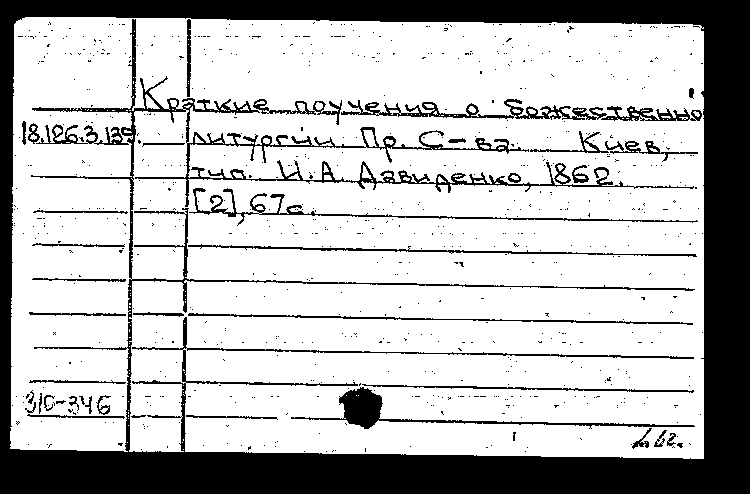 Краткие поучения о божественно
18.126.3.139. литургии. Пр. С-ва. Киев,
тип. И. А. Давиденко, 1862.
[2], 67с.
310-346